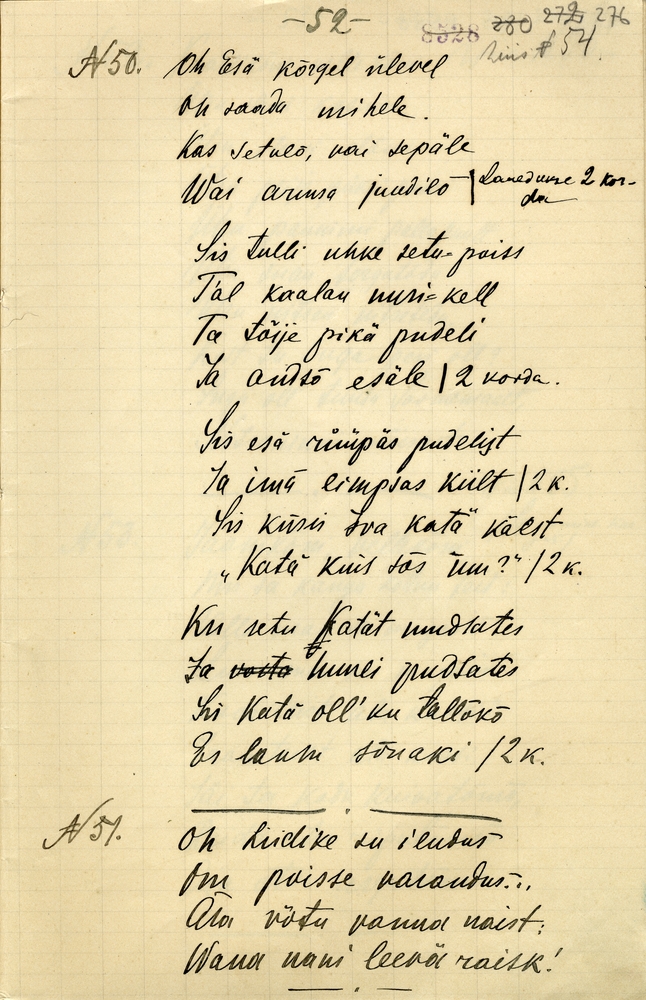 -52-
8528 280 272 276
№50. Oh Esä kõrgel ülevel
Oh saada mihele.
Kas setulõ, vai sepäle
Wai armsa juudilõ | Lauedusse 2 kor-
da
Sis tulli uhke setu-poiss
Täl kaalan uuri-kell
Ta tõije pikä pudeli
Ja andsõ esäle | 2 korda.
Sis esä rüüpäs pudelist
Ja imä limpsas külit | 2 k.
Sis küsis Iva Katä käest
„Katä kuis sõs um?" | 2 k.
Ku setu Katät mudsates
Ja vasta huuli pudsates
Sis Katä oll' ku tallõkõ
Es lausu sõnaki | 2 k.
№51. Oh Liidike su iludus
Om poisse varandus...
Ära võtu vanna naist:
Wana nani leevä raisk!